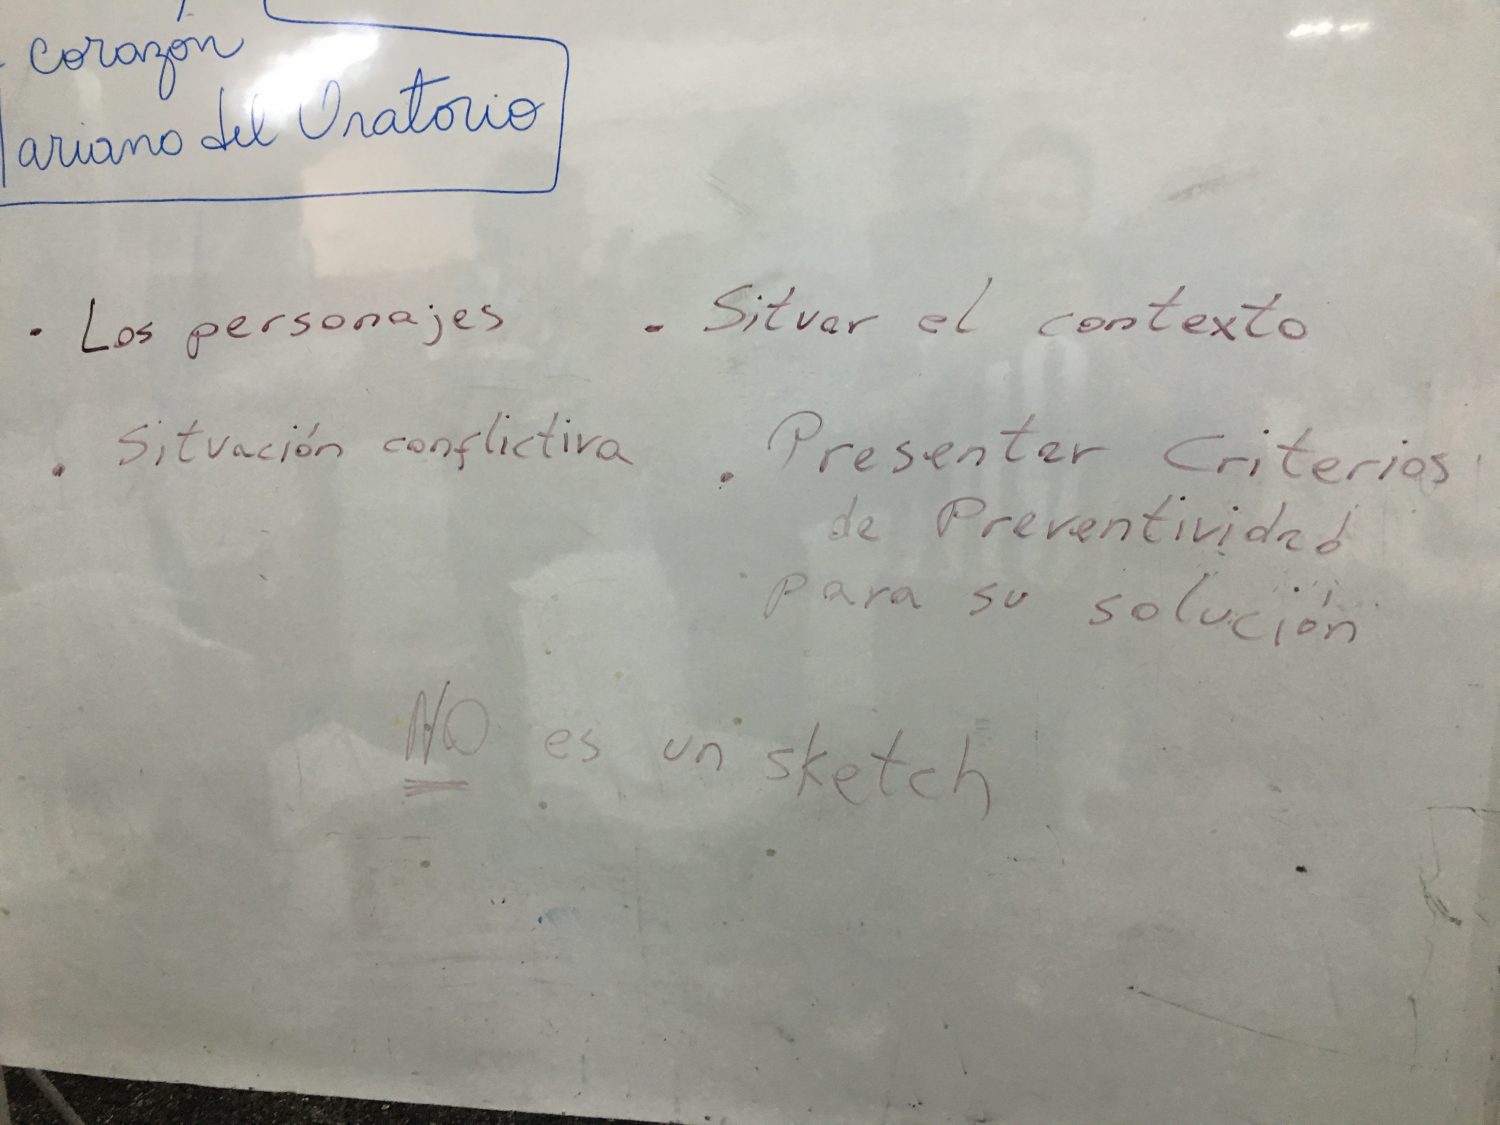 corazón
ariano del Oratorio
• Los personajes
• Situar el contexto
• Situación conflictiva
• Presentar Criterios
de Preventividad
para su solución
NO es un sketch